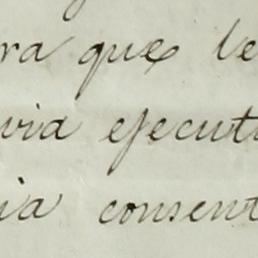 ra que le
via ejecut
ia consent